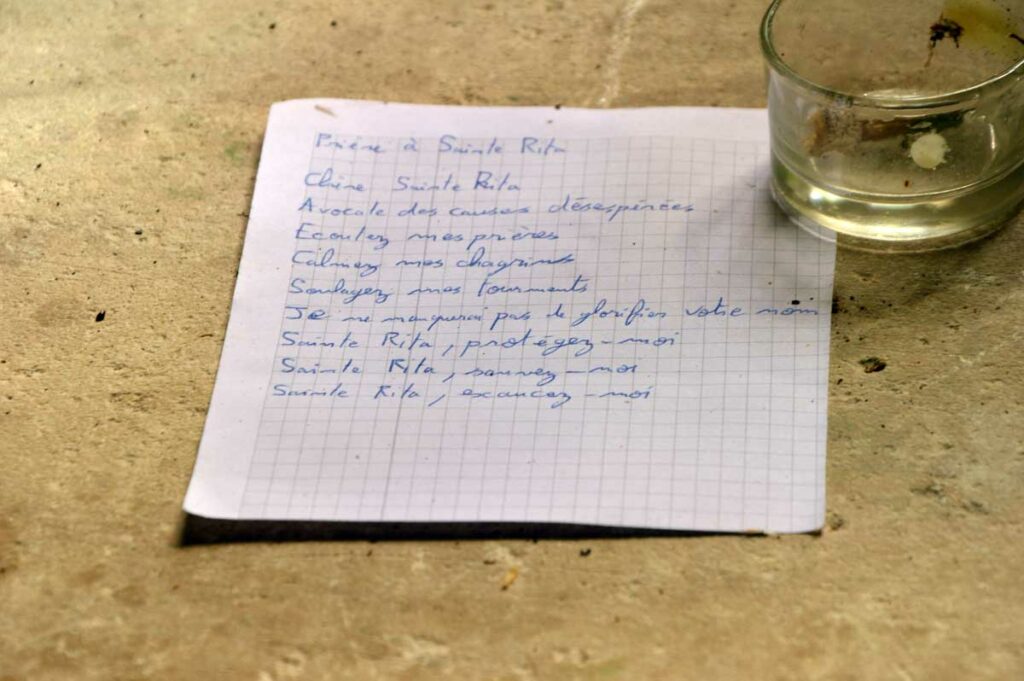 Prière à Sainte Rita
Chère Sainte Rita
Avocate des causes désespérées
Ecoutez mes prières
Calmez mes chagrins
Soulagez mes tourments
Je ne manquerai pas de glorifier votre nom
Sainte Rita, protégez-moi
Sainte Rita, sauvez-moi
Sainte Rita, exaucez-moi